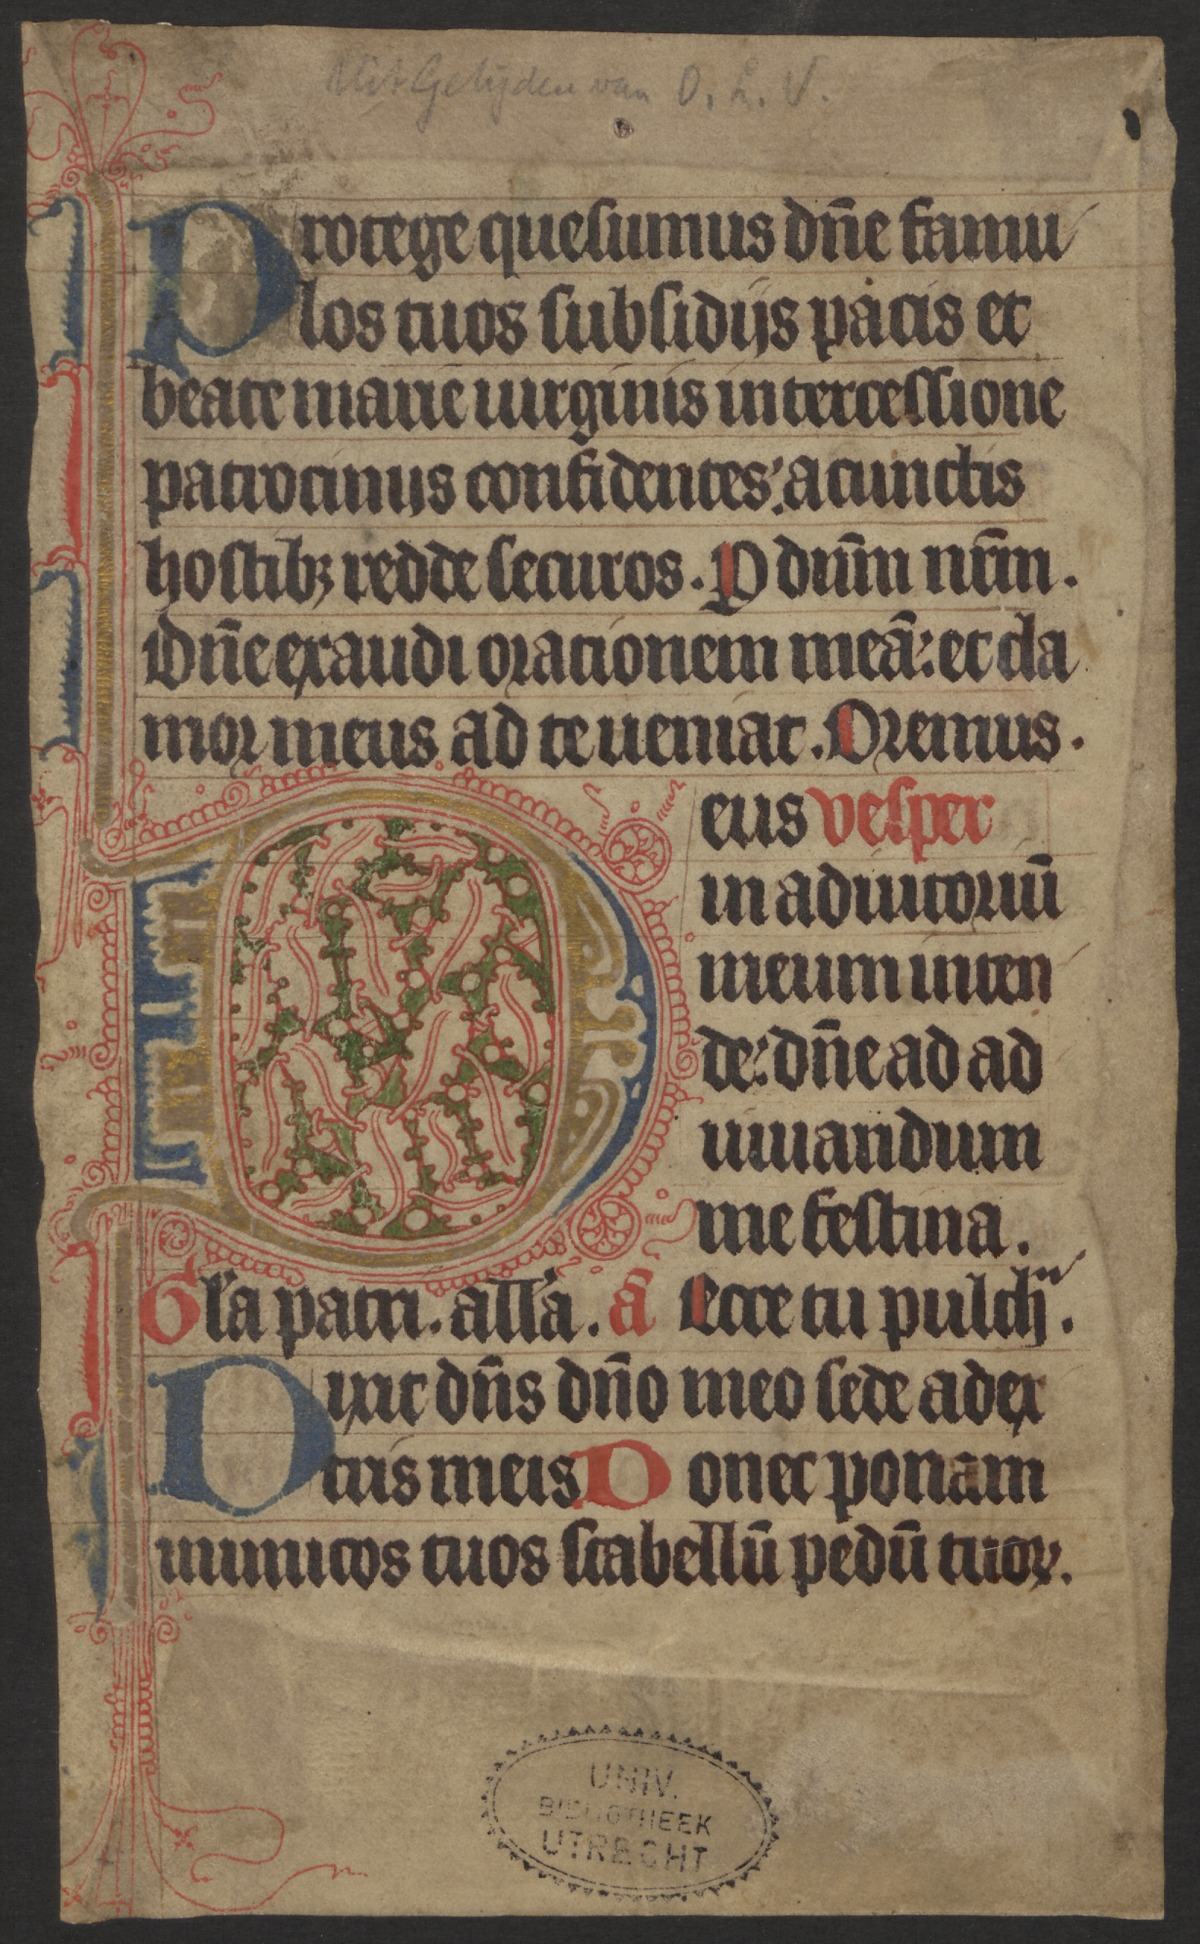 Uit Getijden van O. L. V.
Protege quesumus dn̄e famu
los tuos subsidijs pacis et
beate marie uirginis intercessione
patrocinijs confidentes: a cunctis
hostibꝫ redde securos. P dn̄m nr̄m.
Dn̄e exaudi orationem meā: et cla
mor meus ad te ueniat. Oremus.
Deus vesper
in adiutoriū
meum inten
de: dn̄e ad ad
iuuandum
me festina.
Gl'a patri. all'a. ā Ecce tu pulch''.
Dixit dn̄s dn̄o meo sede a dex
tris meis Donec ponam
inimicos tuos scabellū pedū tuoꝝ.
UNIV.
BIBLIOTHEEK
UTRECHT